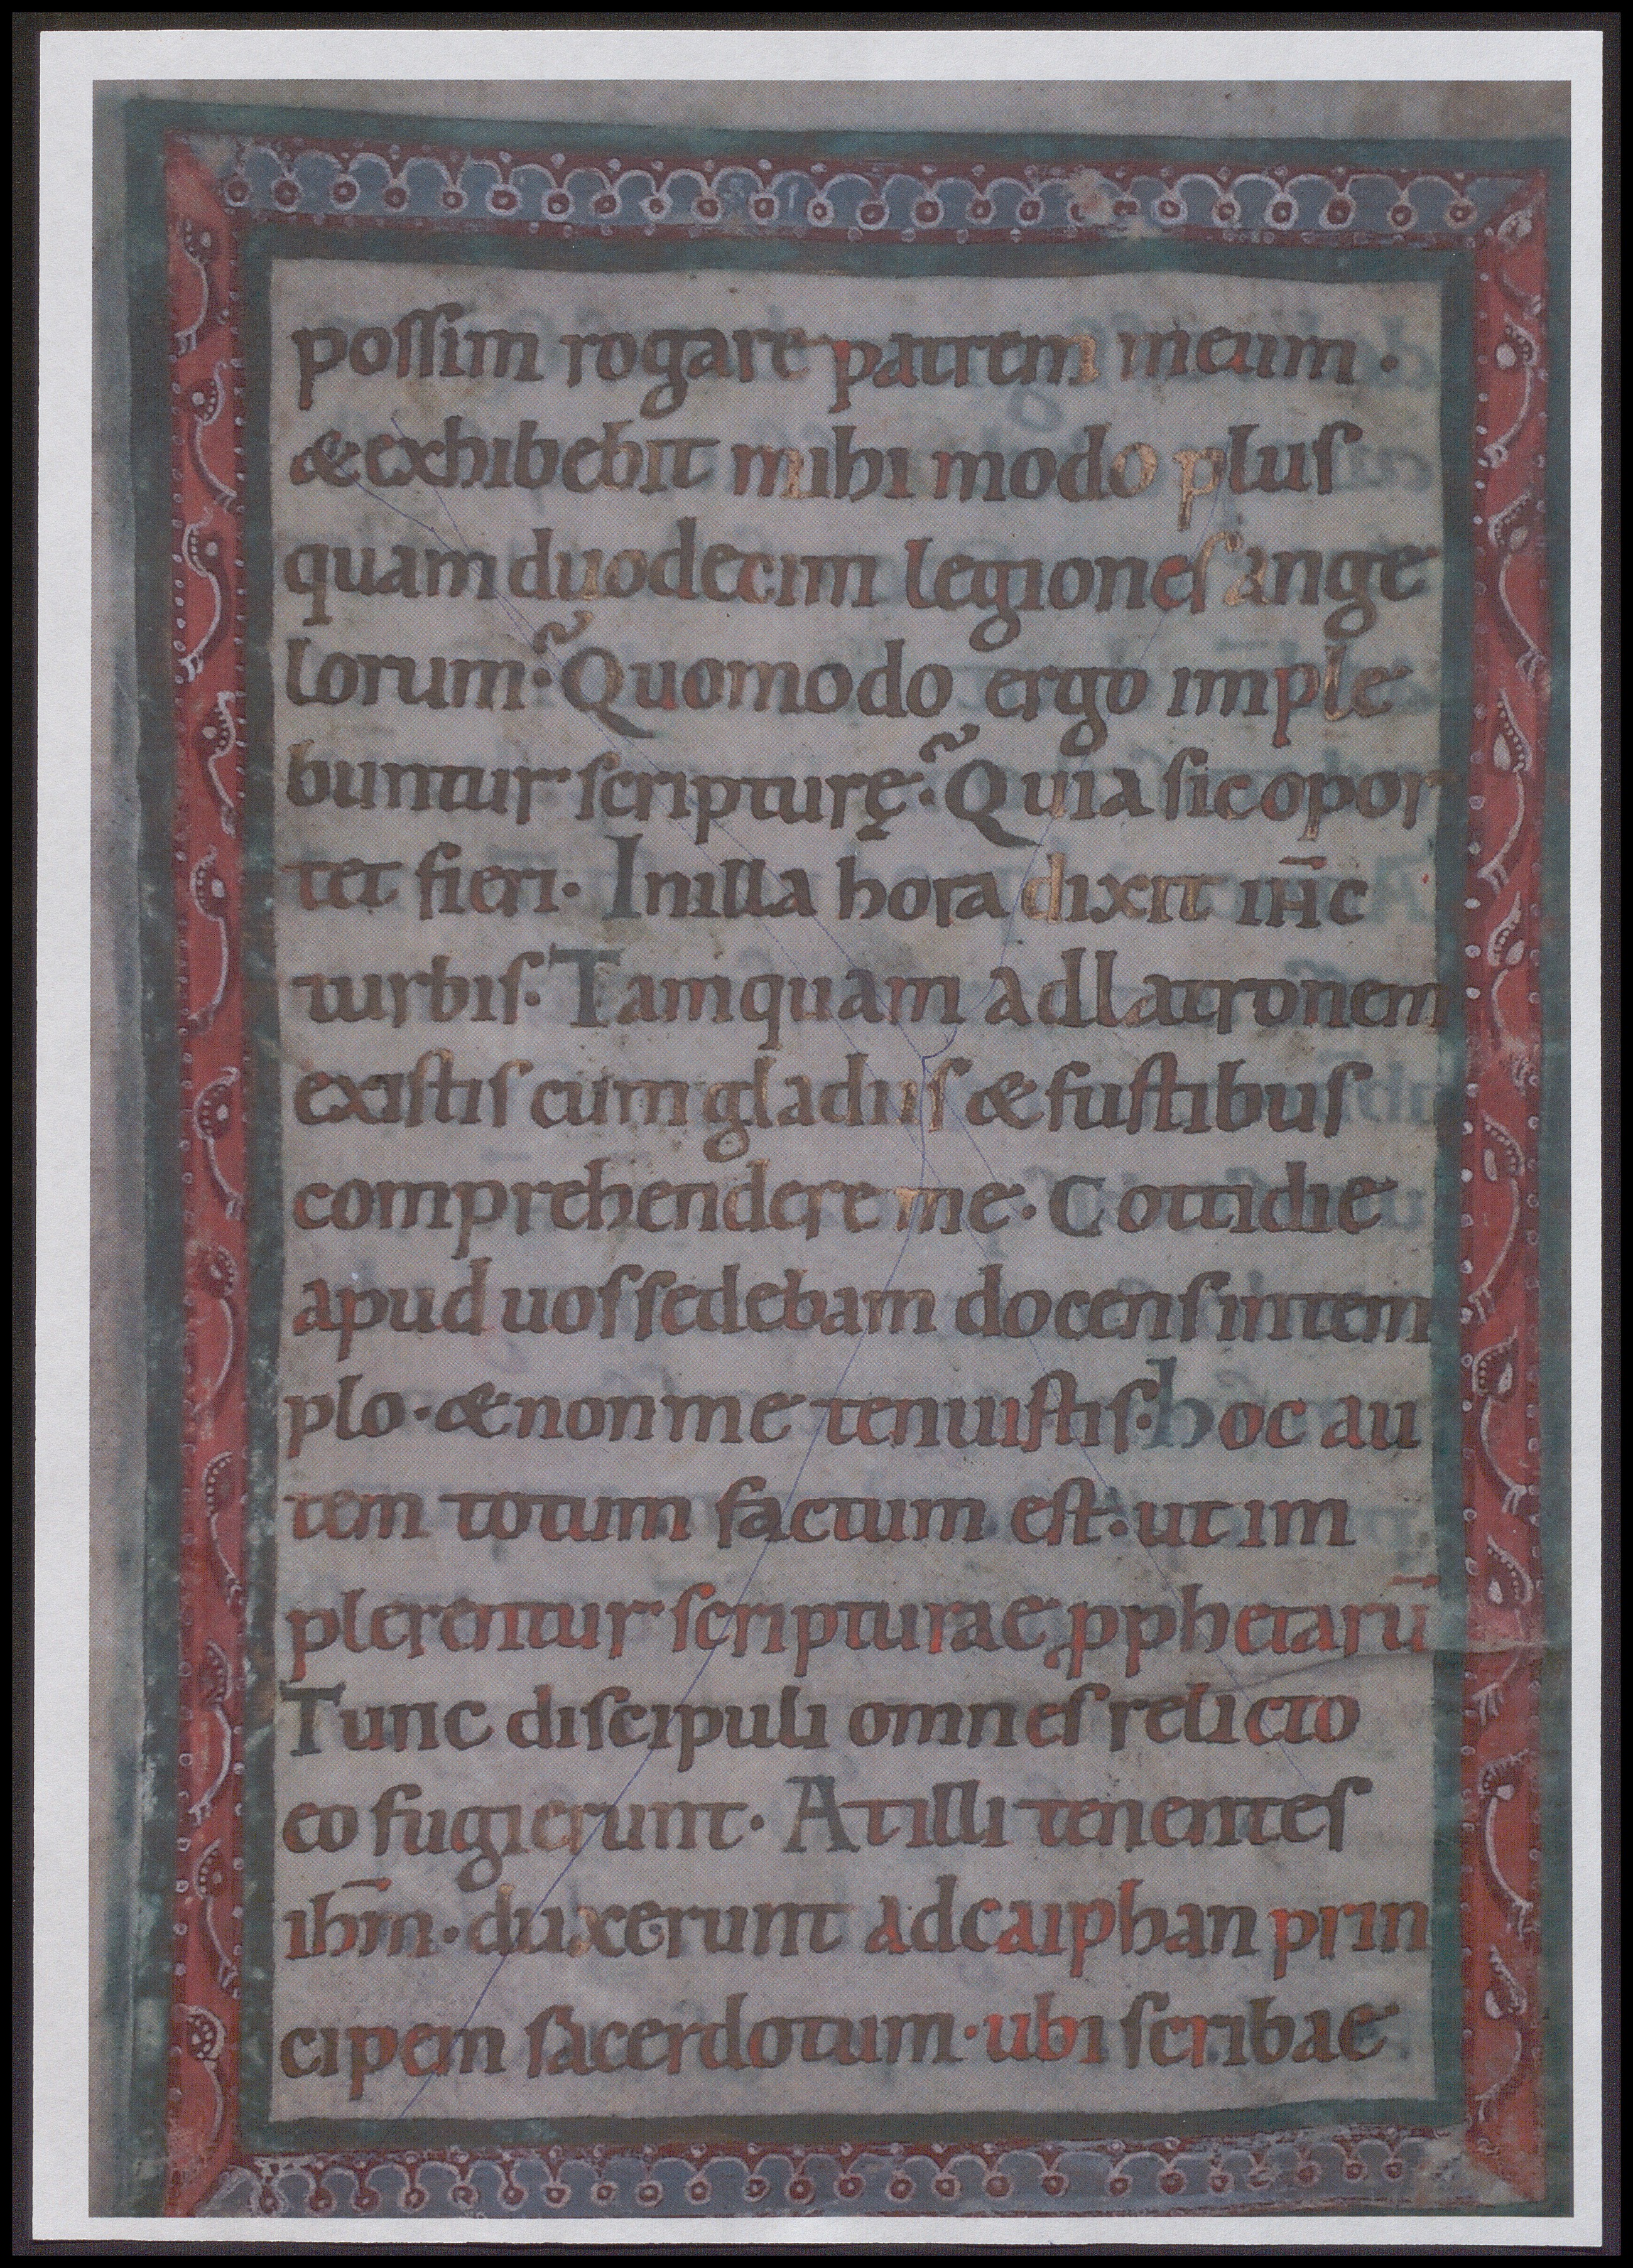 possim rogare patrem meum·
&exhibebit mihi modo plus
quam duodecim legiones ange
lorum? Quomodo ergo imple
buntur scripturę? Quia sic opor
tet fieri· In illa hora dixit ih̄c
turbis· Tamquam ad latronem
existis cum gladiis & fustibus
comprehendere me· Cottidie
apud uos sedebam docens in tem
plo· & non me tenuistis· hoc au
tem totum factum est· ut im
plerentur scripturae pphetarū
Tunc discipuli omnes relicto
eo fugierunt· At illi tenentes
ihm̄· duxerunt ad caiphan prin
cipem sacerdotum· ubi scribae